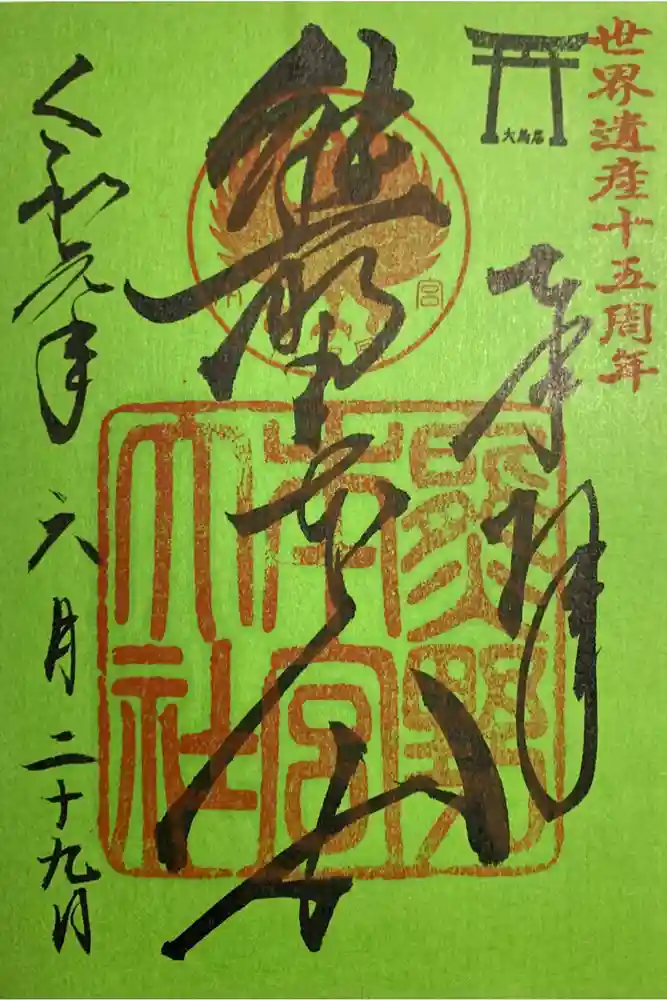 世界遺産十五周年
大鳥居
奉拝
熊野
熊野
本宮
大社
令和元年六月二十九日